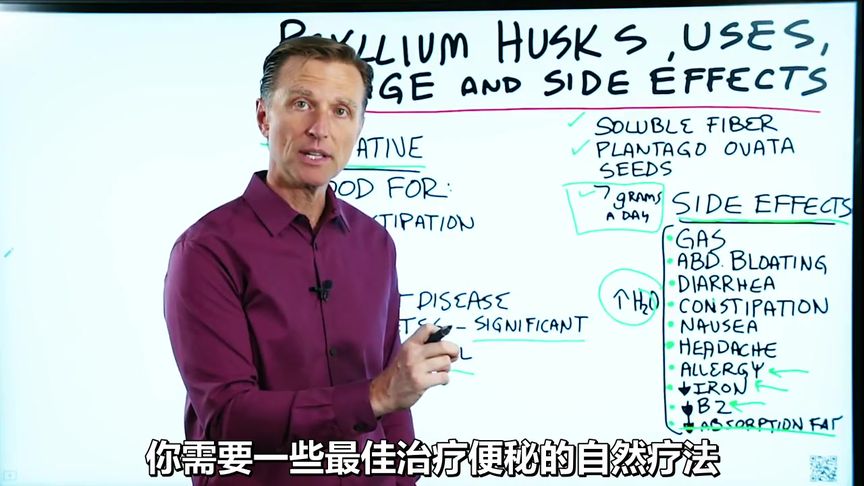 PSYLLIUM HUSKS, USES,
AGE AND SIDE EFFECTS
ATIVE
OOD FOR:
STIPATION
T DISEASE
TES - SIGNIFICANT
L
✓ SOLUBLE FIBER
✓ PLANTAGO OVATA
SEEDS
✓ 7 GRAMS
A DAY
↑ H2O
SIDE EFFECTS
• GAS
• ABD. BLOATING
• DIARRHEA
• CONSTIPATION
• NAUSEA
• HEADACHE
• ALLERGY ←
• ↓ IRON ←
• ↓ B2 ←
• ↓ ABSORPTION FAT
你需要一些最佳治疗便秘的自然疗法